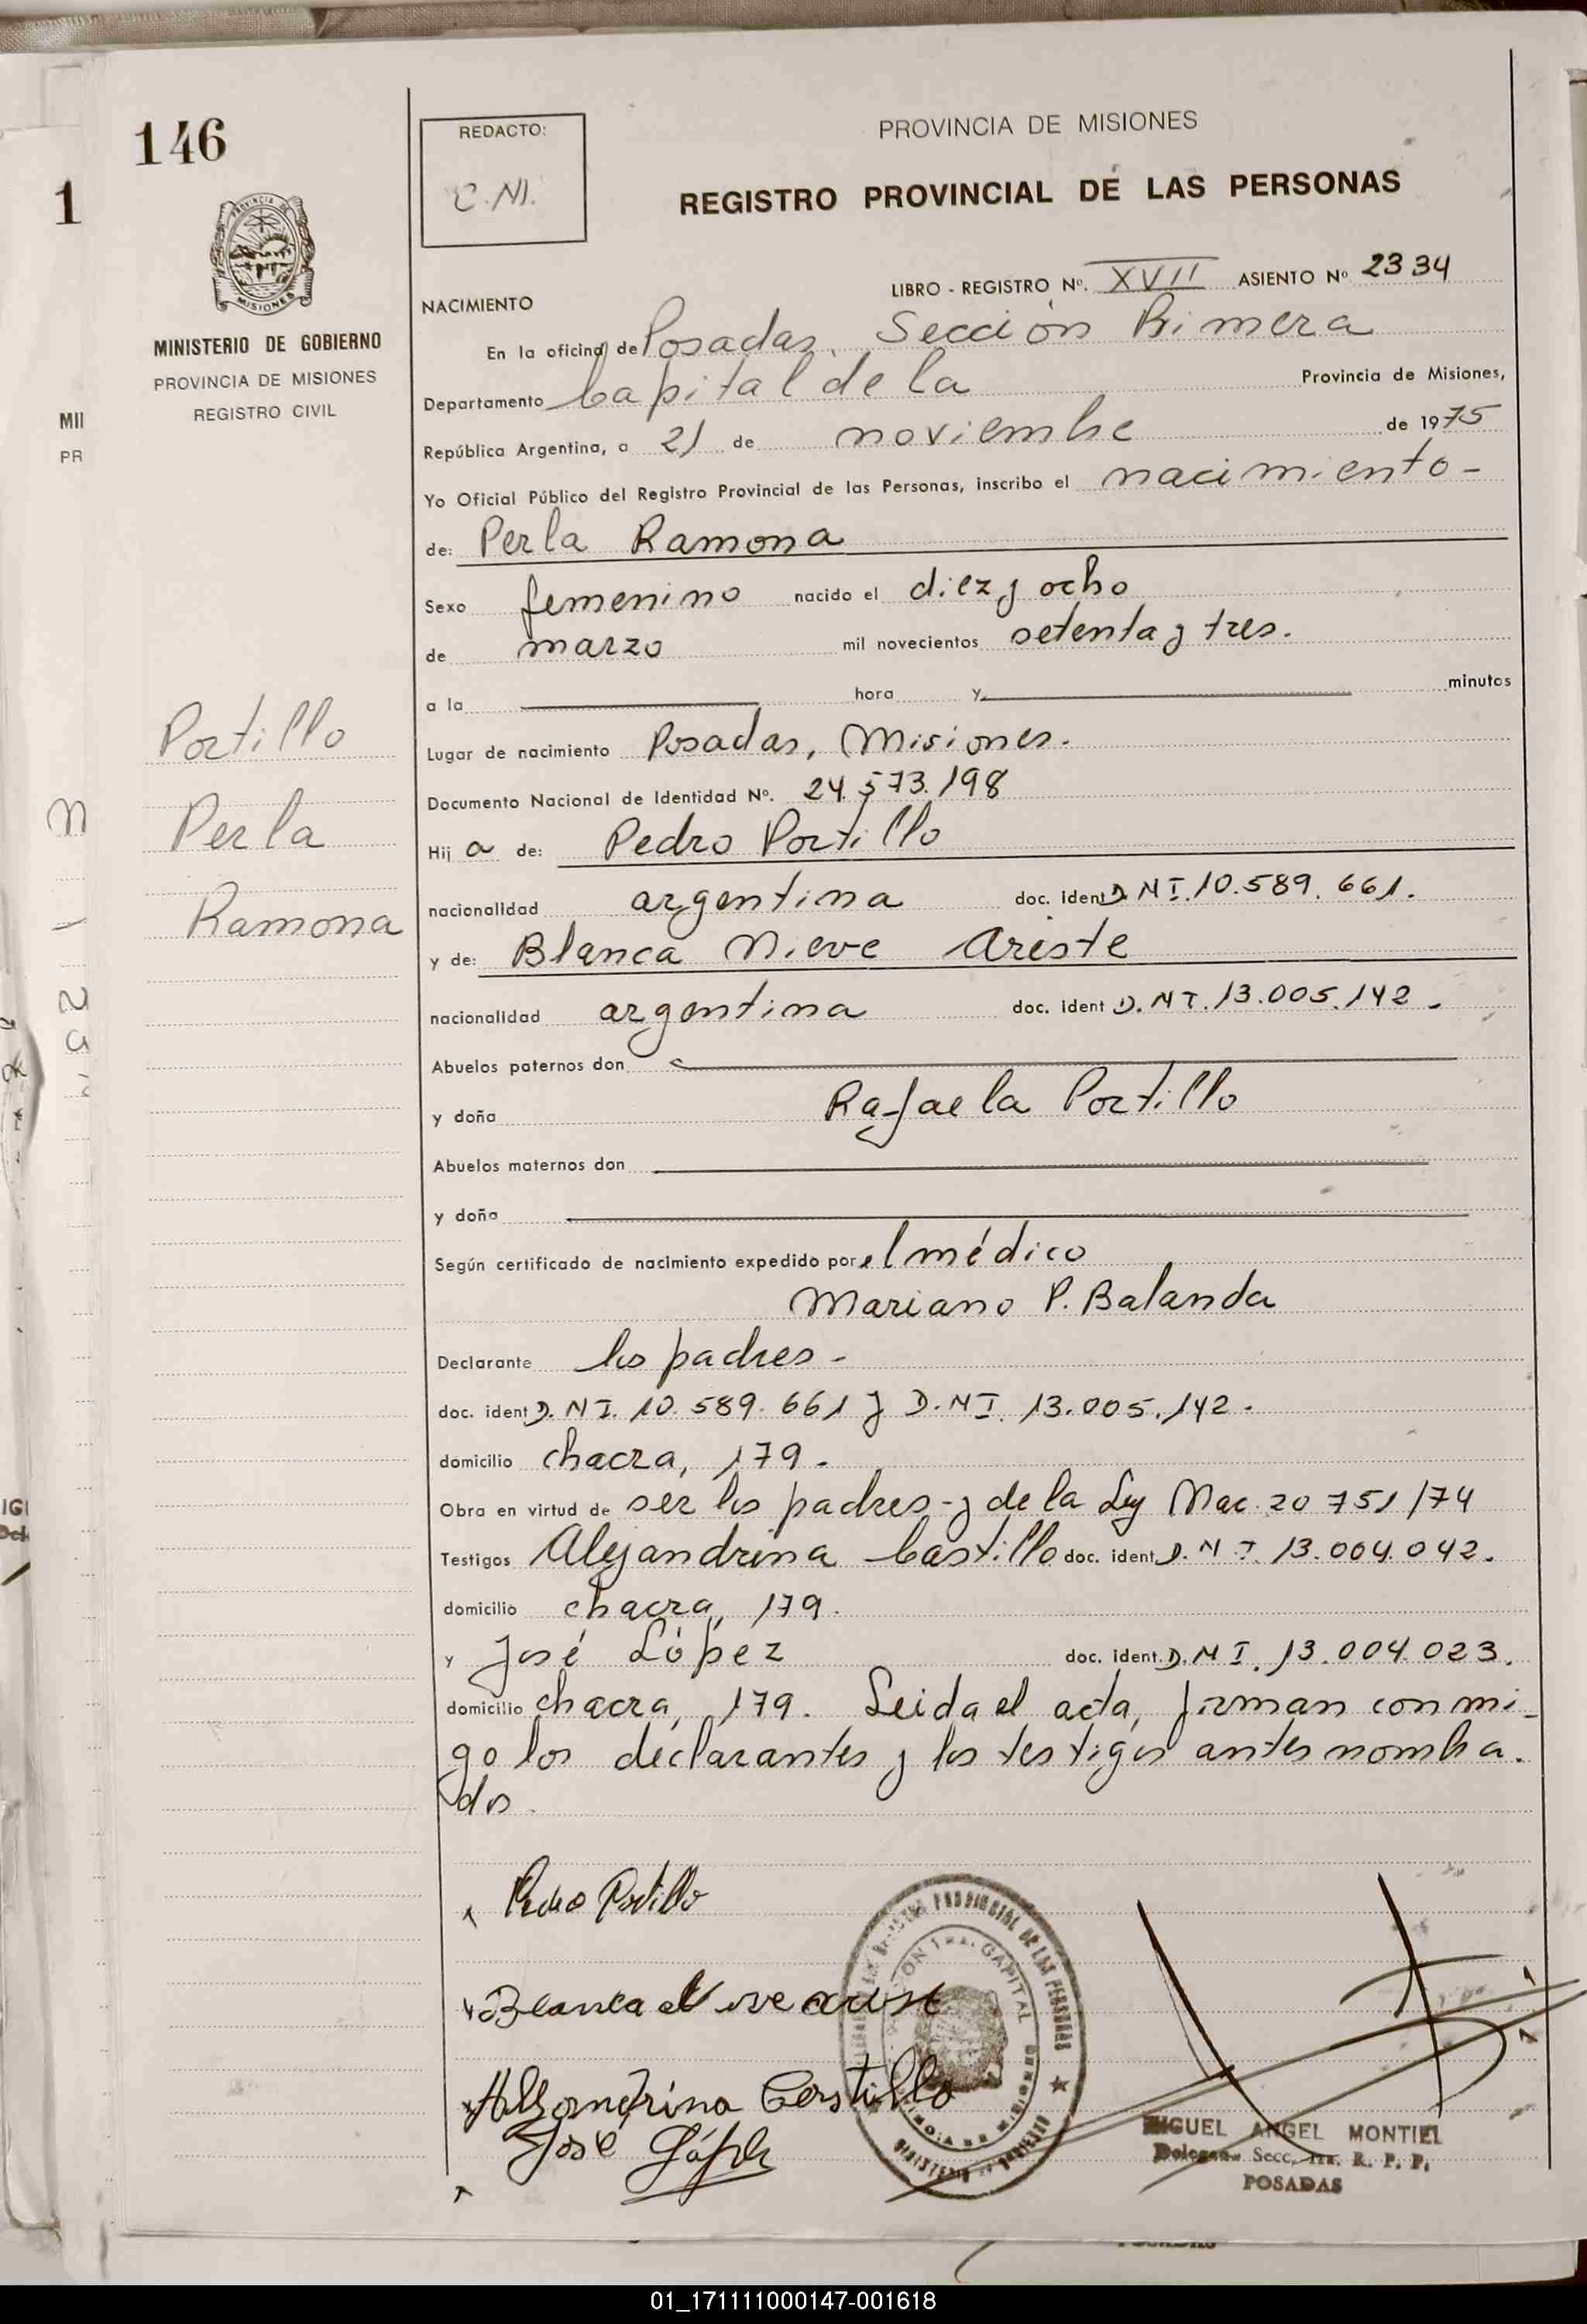 146
1
REDACTO:
C.NI.
PROVINCIA DE MISIONES
REGISTRO PROVINCIAL DE LAS PERSONAS
PROVINCIA DE
MISIONES
MINISTERIO DE GOBIERNO
PROVINCIA DE MISIONES
REGISTRO CIVIL
MII
PR
LIBRO - REGISTRO Nº. XVII ASIENTO Nº 2334
NACIMIENTO
En la oficina de Posadas, Sección Primera
Departamento Capital de la Provincia de Misiones,
República Argentina, a 21 de noviembre de 1975
Yo Oficial Público del Registro Provincial de las Personas, inscribo el nacimiento -
de: Perla Ramona
Sexo femenino nacido el diez y ocho
de marzo mil novecientos setenta y tres.
a la hora y minutos
Portillo
Perla
Ramona
Lugar de nacimiento Posadas, Misiones.
Documento Nacional de Identidad Nº. 24.573.198
Hij a de: Pedro Portillo
nacionalidad argentina doc. ident D.N I. 10.589.661.
y de: Blanca Nieve Ariste
nacionalidad argentina doc. ident D.N I. 13.005.142.
Abuelos paternos don
y doña Rafaela Portillo
Abuelos maternos don
y doña
Según certificado de nacimiento expedido por el médico
Mariano P. Balanda
Declarante los padres -
doc. ident D. N I. 10.589.661 y D.N I. 13.005.142.
domicilio chacra, 179.
Obra en virtud de ser los padres - y de la Ley Nac. 20 751/74
Testigos Alejandrina Castillo doc. ident D. N I. 13.004.042.
domicilio chacra, 179.
y José López doc. ident. D.N I. 13.004.023.
domicilio chacra, 179. Leida el acta, firman conmi-
go los declarantes y los testigos antes nombra-
dos.
Pedro Portillo
Blanca Nieve Ariste
Alejandrina Castillo
José López
REGISTRO PROVINCIAL DE LAS PERSONAS
CAPITAL
MIGUEL ANGEL MONTIEL
Delegado Secc. 1ra. R. P. P.
POSADAS
01_171111000147-001618